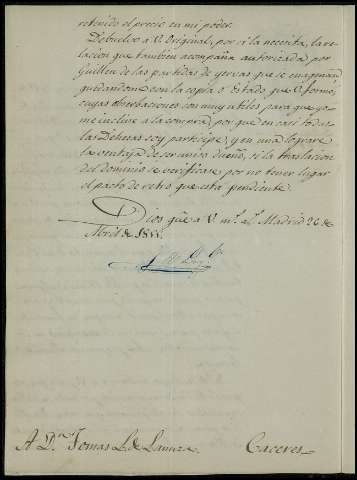 retenido el precio en mi poder.
Debuelvo á V. original, por si la necesita, la re-
lacion que tambien acompaña autorizada por
Guillen de las partidas de yervas que se enagenan
quedandome con la copia ó Estado que V. formó,
cuyas observaciones son muy utiles, para que yo
me incline á la compra, por que en casi todas
las Dehesas soy participe, y en una lograré
la ventaja de ser unico dueño, si la traslacion
del dominio se verificase, por no tener lugar
el pacto de retro, que está pendiente.
Dios güe á V. m.s a.s Madrid 26 de
Abril de
A D.n Tomas L. de Lanuza. Caceres